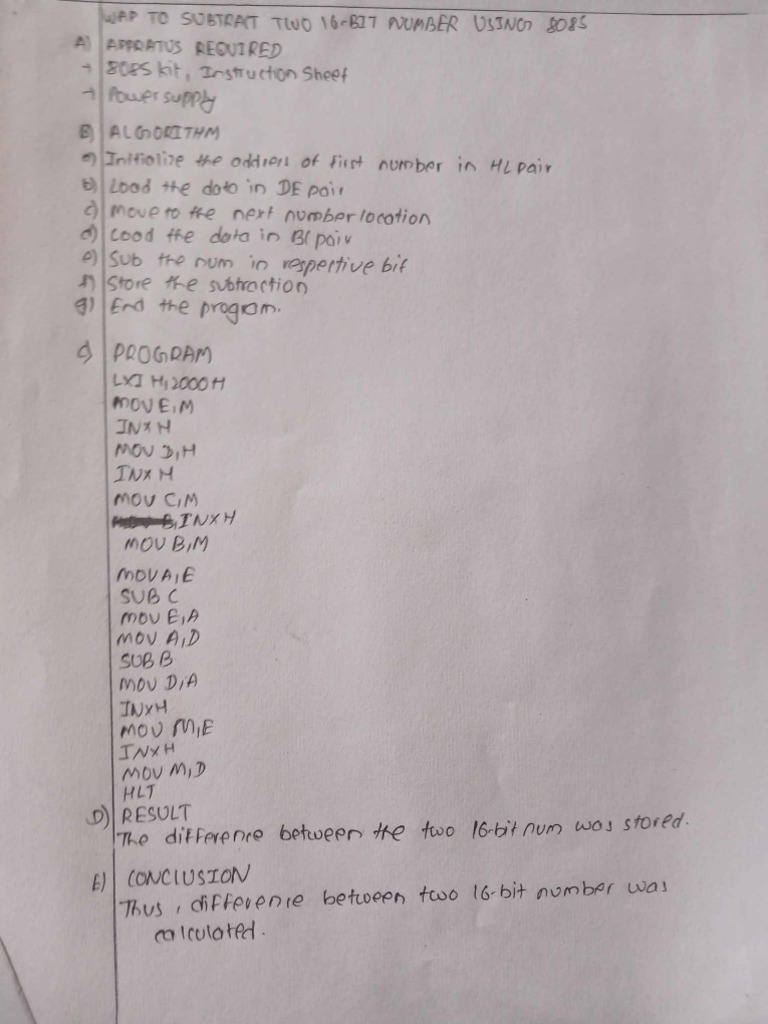 WAP TO SUBTRACT TWO 16-BIT NUMBER USING 8085
A) APPRATUS REQUIRED
→ 8085 kit, Instruction Sheet
→ Power supply
B) ALGORITHM
a) Initialize the address of first number in HL pair
b) Load the data in DE pair
c) Move to the next number location
d) Load the data in BC pair
e) Sub the num in respective bit
f) Store the subtraction
g) End the program.
C) PROGRAM
LXI H,2000H
MOV E,M
INX H
MOV D,H
INX H
MOV C,M
INX H
MOV B,M
MOV A,E
SUB C
MOV E,A
MOV A,D
SUB B
MOV D,A
INX H
MOV M,E
INX H
MOV M,D
HLT
D) RESULT
The difference between the two 16-bit num was stored.
E) CONCLUSION
Thus, difference between two 16-bit number was
calculated.